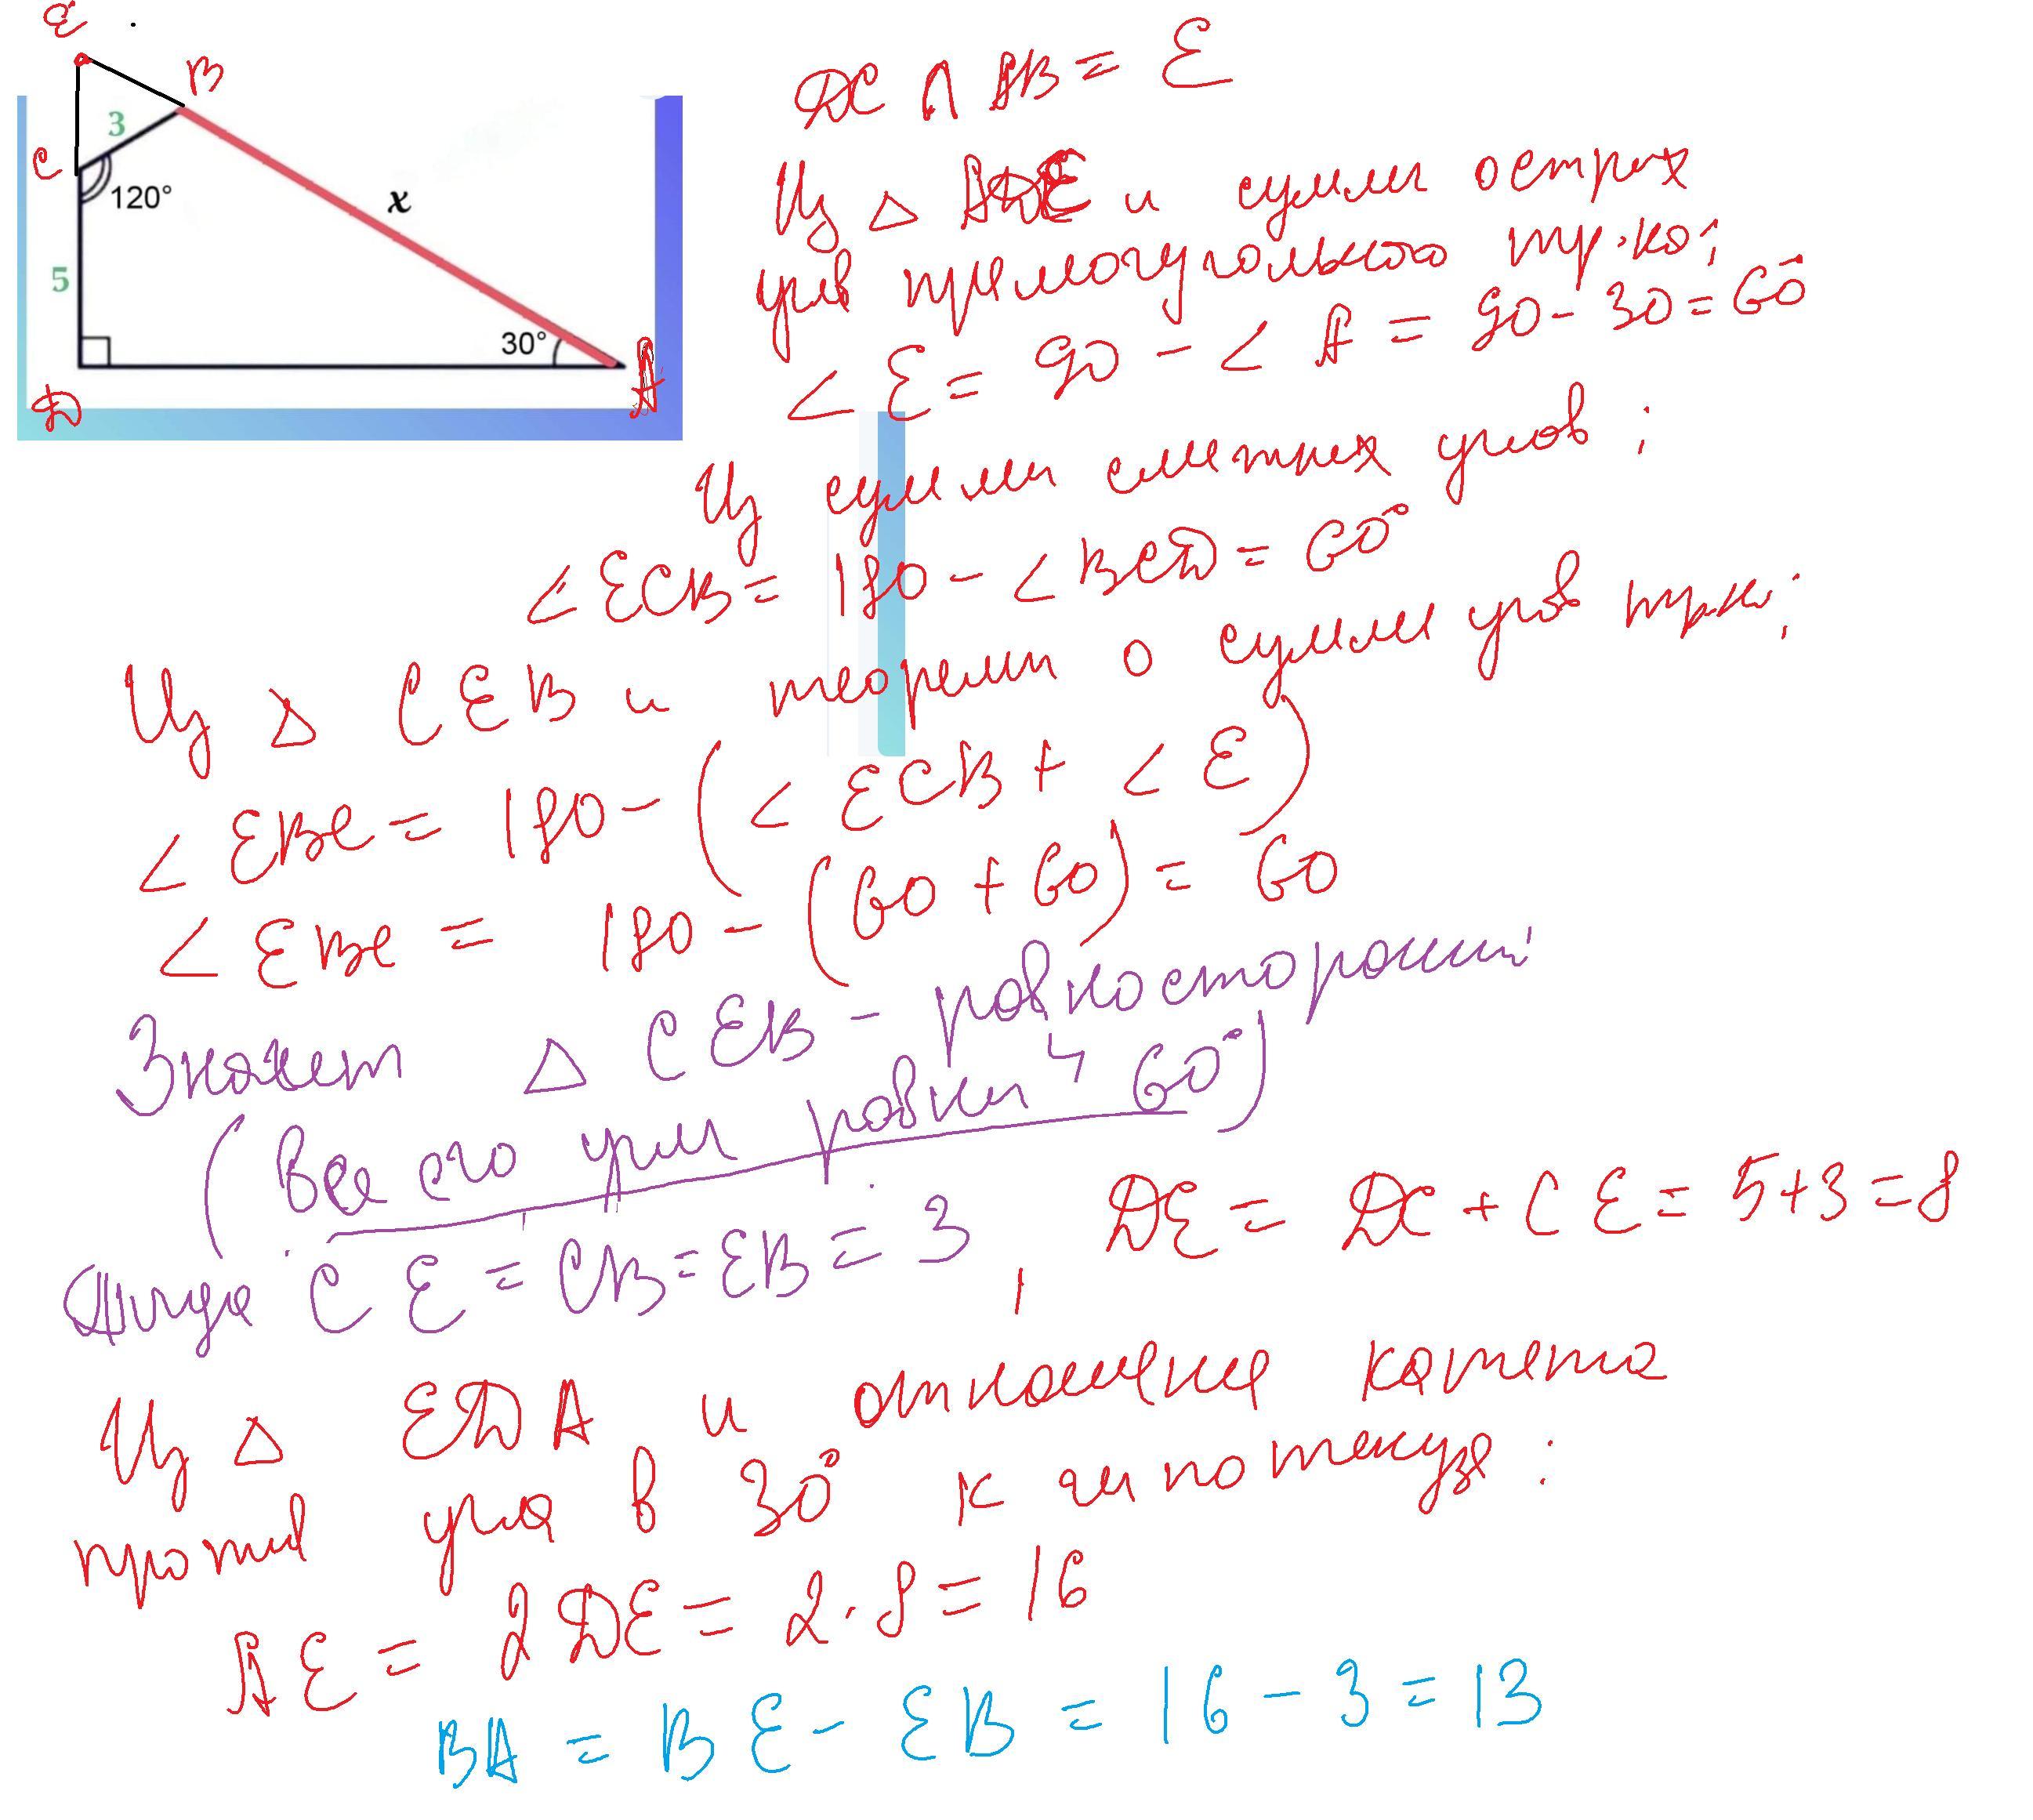 E
B
3
C
120°
x
5
30°
D
A
DC ∩ AB = E
Из △ ADE и суммы острых
углов прямоугольного тр-ка:
∠E = 90 - ∠A = 90 - 30 = 60°
Из суммы смежных углов:
∠ECB = 180 - ∠BCD = 60°
Из △ CEB и теоремы о сумме углов тр-ка:
∠EBC = 180 - (∠ECB + ∠E)
∠EBC = 180 - (60 + 60) = 60
Значит △ CEB - равносторонний
(Все его углы равны 60°)
Тогда CE = CB = EB = 3, DE = DC + CE = 5+3 = 8
Из △ EDA и отношения катета
против угла в 30° к гипотенузе:
AE = 2DE = 2·8 = 16
BA = BE - EB = 16 - 3 = 13